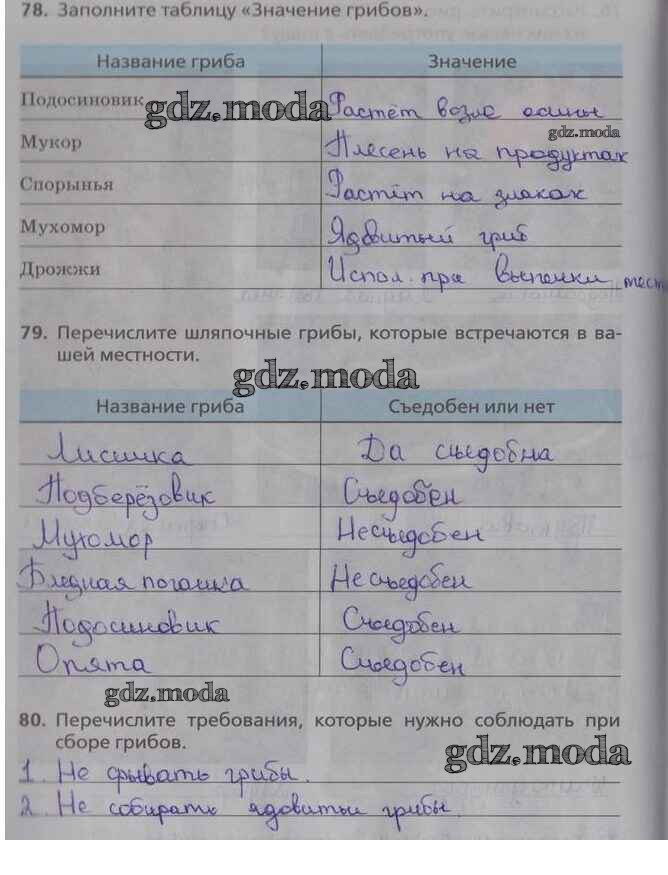 78. Заполните таблицу «Значение грибов».
Название гриба Значение
Подосиновик Растёт возле осины
gdz.moda
gdz.moda
Мукор Плесень на продуктах
Спорынья Растёт на злаках
Мухомор Ядовитый гриб
Дрожжи Испол. при выпечки тест
79. Перечислите шляпочные грибы, которые встречаются в ва-
шей местности.
gdz.moda
Название гриба Съедобен или нет
Лисичка Да съедобна
Подберёзовик Съедобен
Мухомор Несъедобен
Бледная поганка Несъедобен
Подосиновик Съедобен
Опята Съедобен
gdz.moda
80. Перечислите требования, которые нужно соблюдать при
сборе грибов.
gdz.moda
1. Не срывать грибы.
2. Не собирать ядовитые грибы.